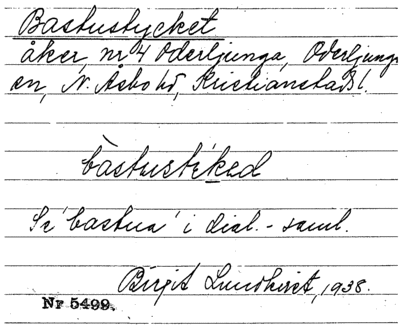 Bastustycket
åker, nr 4 Oderljunga, Oderljunga
sn, N. Åsbo hd, Kristianstads l.
bàstustẹ́kəd
Se 'bastua' i dial.-saml.
Birgit Lundkvist, 1938.
Nr 5499.